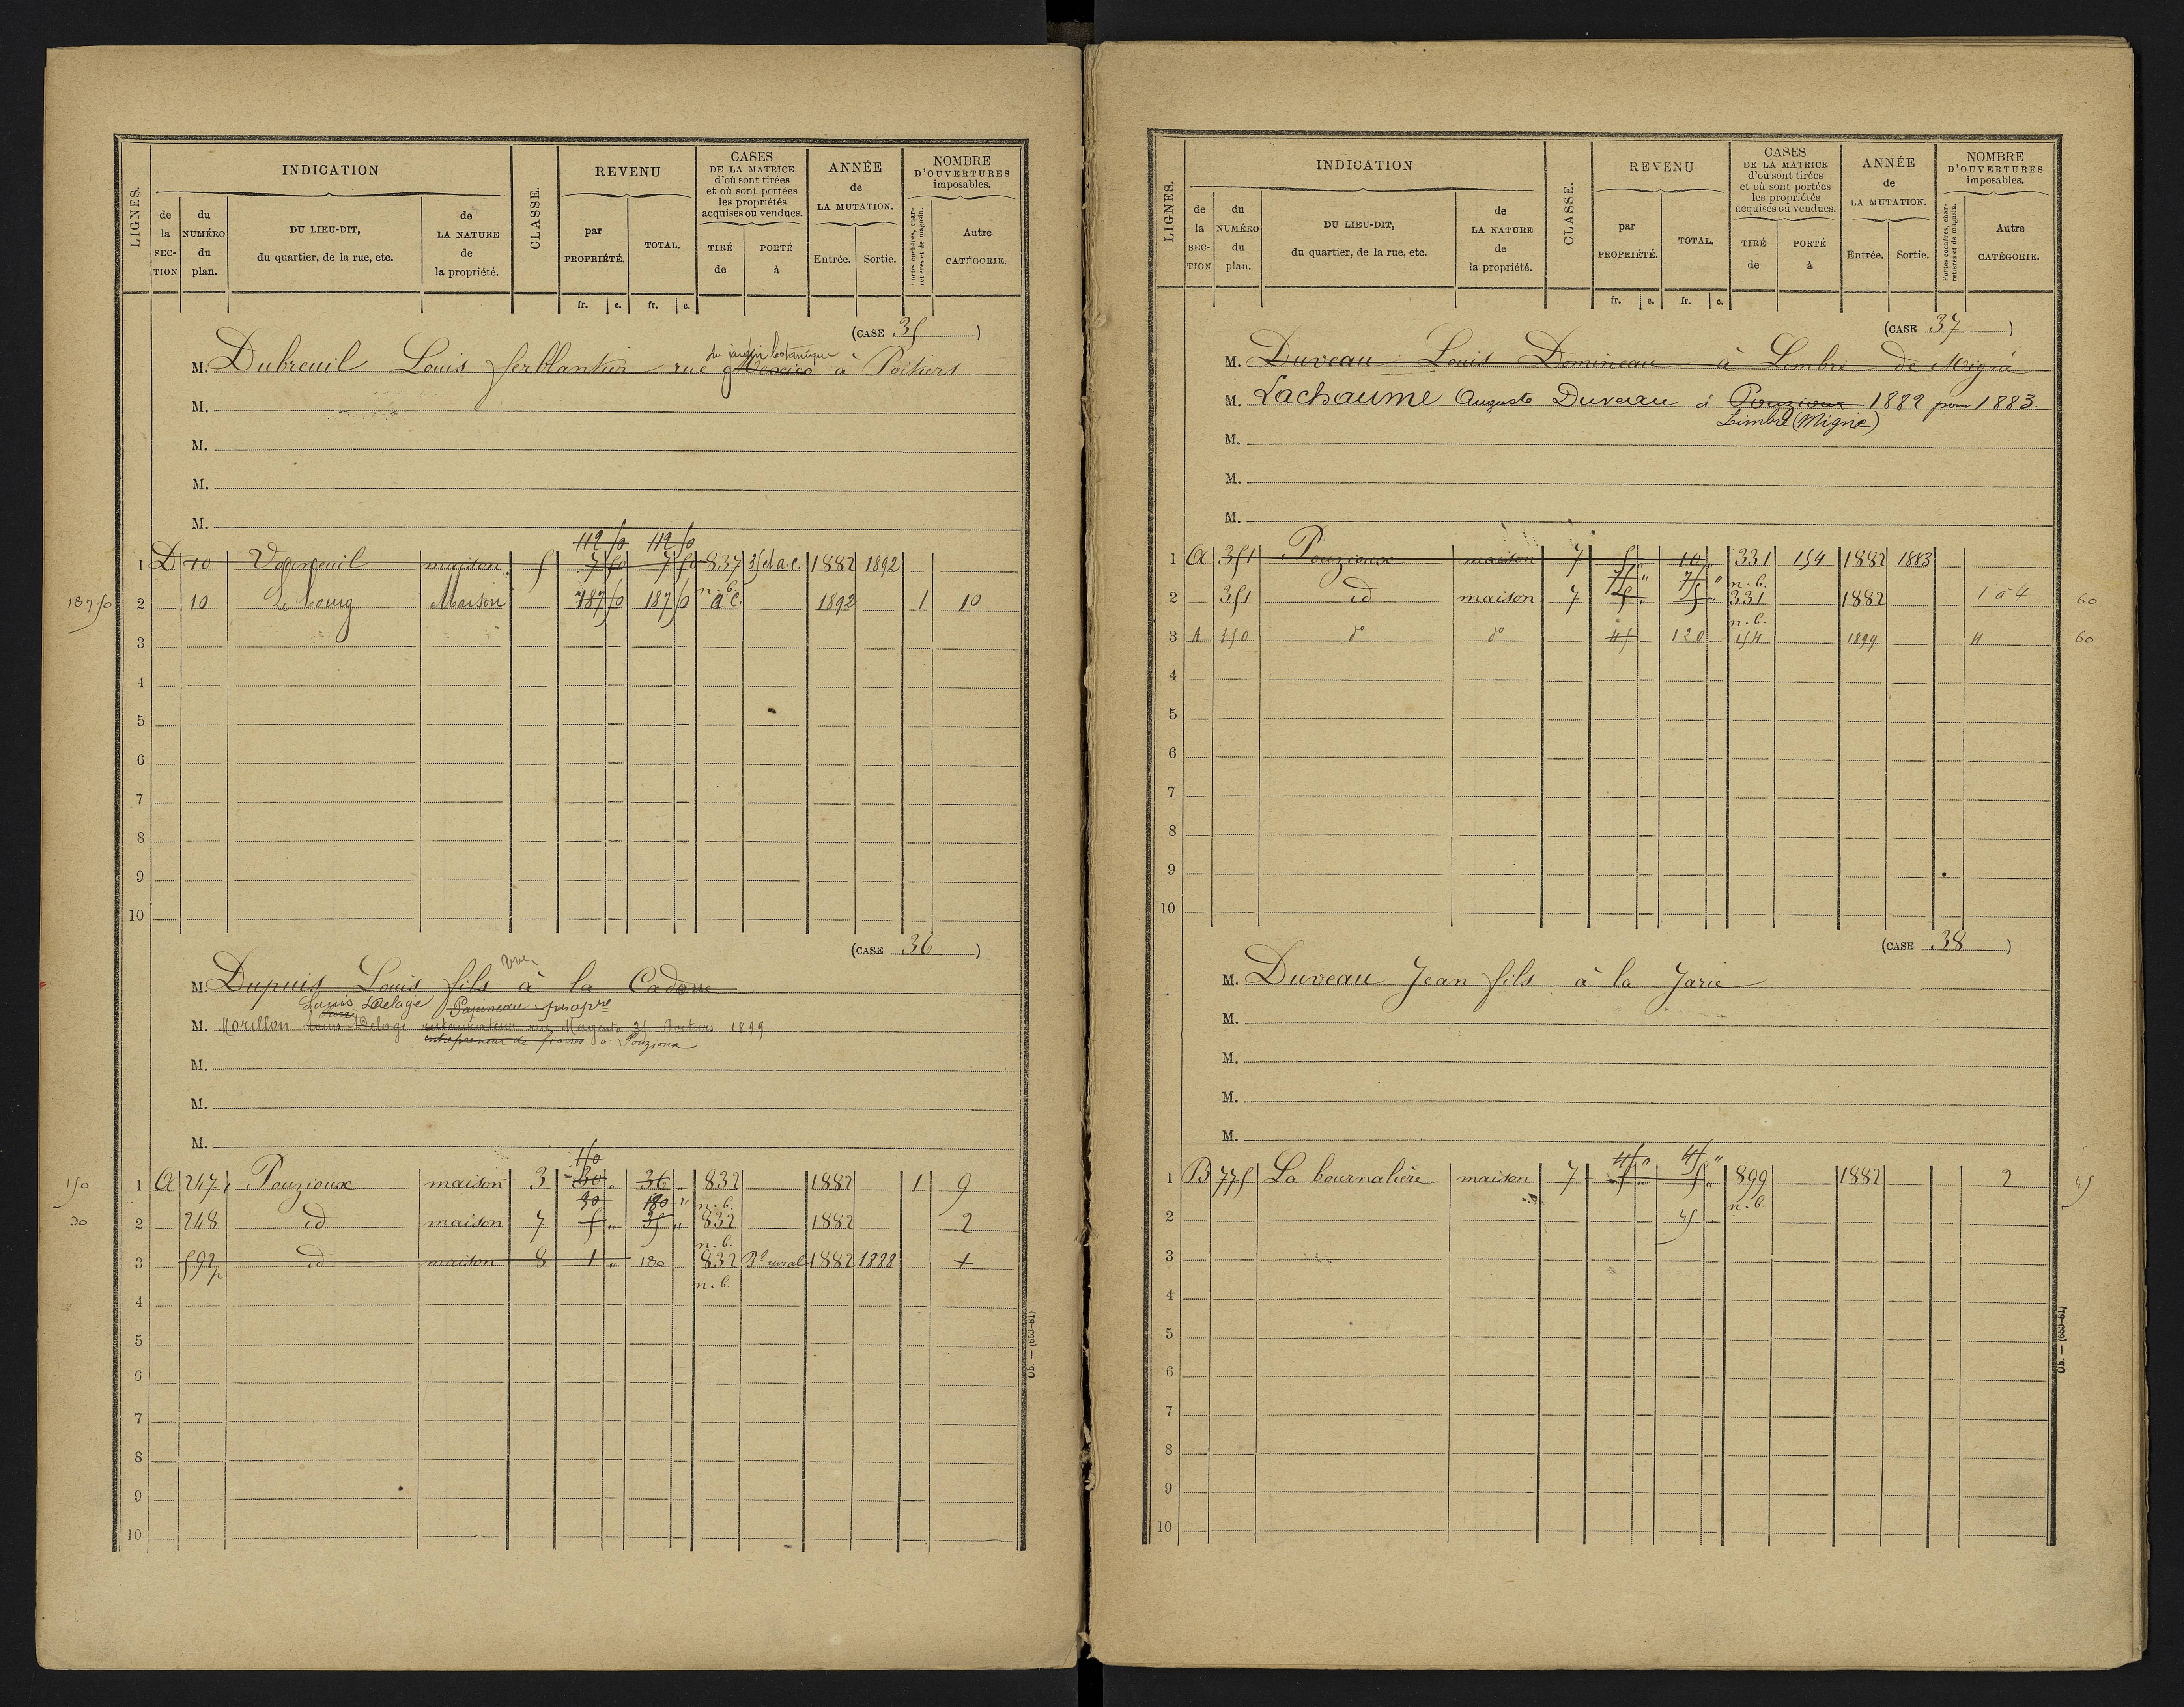 LIGNES.
INDICATION
de la SECTION
du NUMÉRO du plan.
DU LIEU-DIT, du quartier, de la rue, etc.
de LA NATURE de la propriété.
CLASSE.
REVENU
par PROPRIÉTÉ.
TOTAL.
fr. c. fr. c.
CASES DE LA MATRICE d'où sont tirées et où sont portées les propriétés acquises ou vendues.
TIRÉ de
PORTÉ à
ANNÉE de LA MUTATION.
Entrée. Sortie.
NOMBRE D'OUVERTURES imposables.
Portes cochères, charretières et de magasin.
Autre CATÉGORIE.
(CASE 35)
du jardin botanique
M. Dubreuil Louis ferblantier rue Mexico à Poitiers
M.
M.
M.
M.
112 50 112 50
1 D 10 Vouneuil maison 5 7 50 7 50 837 35 et a.c. 1882 1892
n.b.
187 50 2 10 Le bourg Maison 187 50 187 50 a.c. 1892 1 10
3
4
5
6
7
8
9
10
(CASE 36)
vve
M. Dupuis Louis fils à la Cadoue
Louis Delage Papineau propre
M. Morillon Louis Delage restaurateur rue Magenta 31 Poitiers 1899
entrepreneur de à Pouzioux
M.
M.
M.
150
150 1 A 247 Pouzioux maison 3 30 " 36 " 832 1882 1 9
30 180 " n.b.
30 2 248 id maison 7 5 " 35 " 832 1882 2
n.b.
3 592p id maison 8 1 " 180 832 Pé rural 1882 1888 +
n.b.
4
5
6
7
8
9
10
Ob. — (653-81)
LIGNES.
INDICATION
de la SECTION
du NUMÉRO du plan.
DU LIEU-DIT, du quartier, de la rue, etc.
de LA NATURE de la propriété.
CLASSE.
REVENU
par PROPRIÉTÉ.
TOTAL.
fr. c. fr. c.
CASES DE LA MATRICE d'où sont tirées et où sont portées les propriétés acquises ou vendues.
TIRÉ de
PORTÉ à
ANNÉE de LA MUTATION.
Entrée. Sortie.
NOMBRE D'OUVERTURES imposables.
Portes cochères, charretières et de magasin.
Autre CATÉGORIE.
(CASE 37)
M. Duveau Louis Domineau à Limbre de Migné
M. Lachaume Auguste Duveau à Pouzioux 1882 pour 1883
Limbre (Migné)
M.
M.
M.
1 A 351 Pouzioux maison 7 5 " 10 " 331 154 1882 1883
75 " 75 " n.b.
2 351 id maison 7 5 " 5 " 331 1882 1 à 4 60
n.b.
3 A 350 do do 45 120 154 1899 4 60
4
5
6
7
8
9
10
(CASE 38)
M. Duveau Jean fils à la Jarie
M.
M.
M.
M.
45 " 45 "
1 B 775 La bournalière maison 7 5 " 5 " 899 1882 2 45
n.b.
2 45
3
4
5
6
7
8
9
10
Ob. — (653-81)